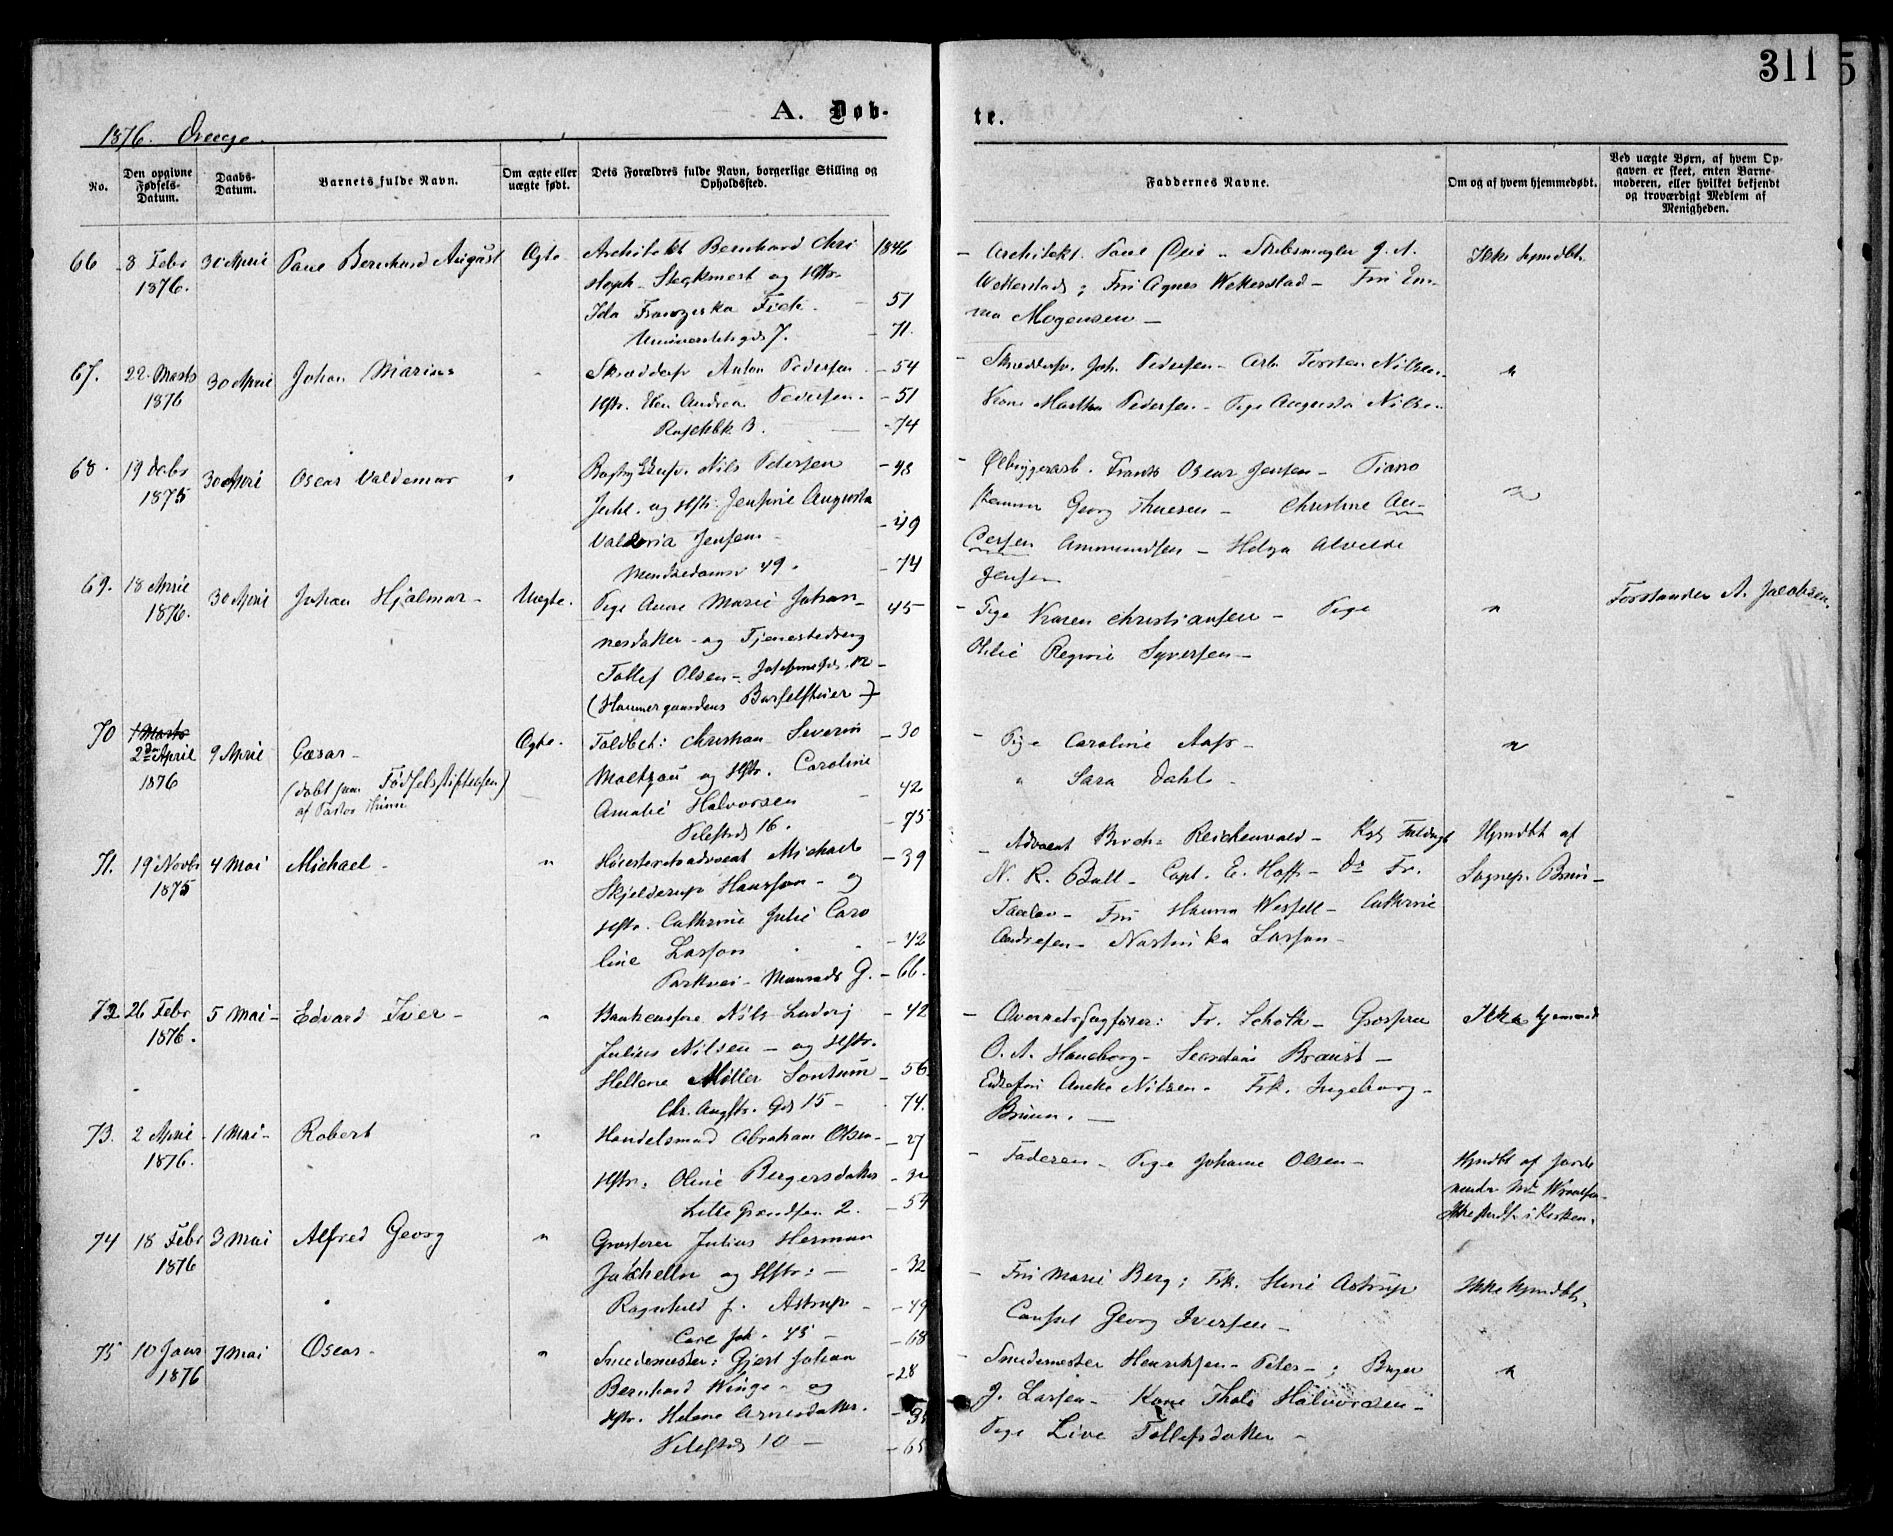 311
5
A. Døb-
te.
1876. Drenge.
No.
Den opgivne Fødsels-Datum.
Daabs-Datum.
Barnets fulde Navn.
Om ægte eller uægte født.
Dets Forældres fulde Navn, borgerlige Stilling og Opholdssted.
Faddernes Navne.
Om og af hvem hjemmedøbt.
Ved uægte Børn, af hvem Op-
gaven er skeet, enten Barne-
moderen, eller hvilket bekjendt
og troværdigt Medlem af
Menigheden.
66 8 Febr 30 April Paul Bernhard August Ægte Architekt Bernhard Chri 1846 - Architekt Paul Due - J. A. Ikke hjmdbt.
1876. stoph. Steckmest og Hstr. Wetterstad; Fru Agnes Wetterstad - Fru Em-
Ida Franziska Fick. - 51 ma Mogensen -
Universitetsgd 7. - 71.
67. 22 Marts 30 April Johan Marius " Skrædersv Anton Pedersen - 54 - Skrædersv. Joh. Pedersen - Arb. Torsten Nilsen - "
1876 Hstr. Elen Andrea Pedersen. - 51 Kone Martha Pedersen - Pige Augusta Nilsen
B. - 74
68. 19 Debr 30 April Oscar Valdemar " Nils Pedersen - 48 - Ølbryggerarb. Frants Oscar Jensen - Piano
1875 og Hstr. Jensine Augusta stemmer Georg Thuesen - Christine An- "
Valboria Jensen - - 49 dersen Ammundsen - Helga Alvilde
Munkedamsv 49. - 74 Jensen
69. 18 April 30 April Johan Hjalmar - Uægte. Pige Anne Marie Johan- 45 - Pige Karen Christiansen - Pige " Forstander A. Jacobsen.
1876. nesdatter - og Tjenestedreng Regine Syversen -
Tollef Olsen - Josefinegd. 12 -
(Hammergaardens
70 1 Marts
2den April 9 April Cæsar - Ægte. Toldbet: Christian Severin - 30 - Pige Caroline Aas - "
1876 (døbt paa Fødselsstiftelsen) Moltzau og Hstr. Caroline " Sara Dahl -
af Pastor Amalie Halvorsen - 42
Pilestrd 16. - 75
71. 19 Novbr 4 Mai Michael - " Høiesteretsadvocat Michael - 39 - Advocat Broch - Reichenwald - Hjmdbt af
1875 Skjelderup Hansson - og N. R. Bull - Capt. E. Hoff - Do Fr. Sognepr. Bruun -
Hstr. Cathrine Julie Caro - Fru Hanna Wessell - Cathrine
line Larson - 42 Andresen - Larson -
Parkvei - G. - 66.
72. 26 Febr 5 Mai - Edvard Iver - " Nils Ludvig - 42 - Overretssagfører: Fr. Schøth - Grosserer Ikke hjemmed
1876. Julius Nilsen - og Hstr. O. A. Haneborg - Braust -
Hellene Møller Sontum - 56 Anette Nilsen - Frk. Ingeborg -
Chr. Augstr. Gd 15 - - 74. Bruun. -
73. 2 April - 1 Mai - Robert " Handelsmand Abraham Olsen - - 27 - Faderen - Pige Johanne Olsen - Hjmdbt af Jorde
1876. Hstr: Oline Bergersdatter - moder
Lille Grændsen 2. - i Kirken.
74 18 Febr 3 Mai Alfred Georg " Grosserer Julius Herman - Fru Marie Berg; Frk. Astrup Ikke hjmdbt.
1876 Jakhelln og Hstr: - - 32 Consul Georg Iversen -
Ragnhild f. Astrup - - 49
Carl Joh. 45 - - 68
75 10 Janr 7 Mai Oscar - " Smedemester: Gjert Johan - Smedemester Henriksen - Peter - ; Bager "
1876 Bernhard Winge - og - 28 J. Larsen - Kone Halvorsen -
Hstr. Helene Arnesdatter. Pige Live Tollefsdatter -
Pilestrd 10 - - 65